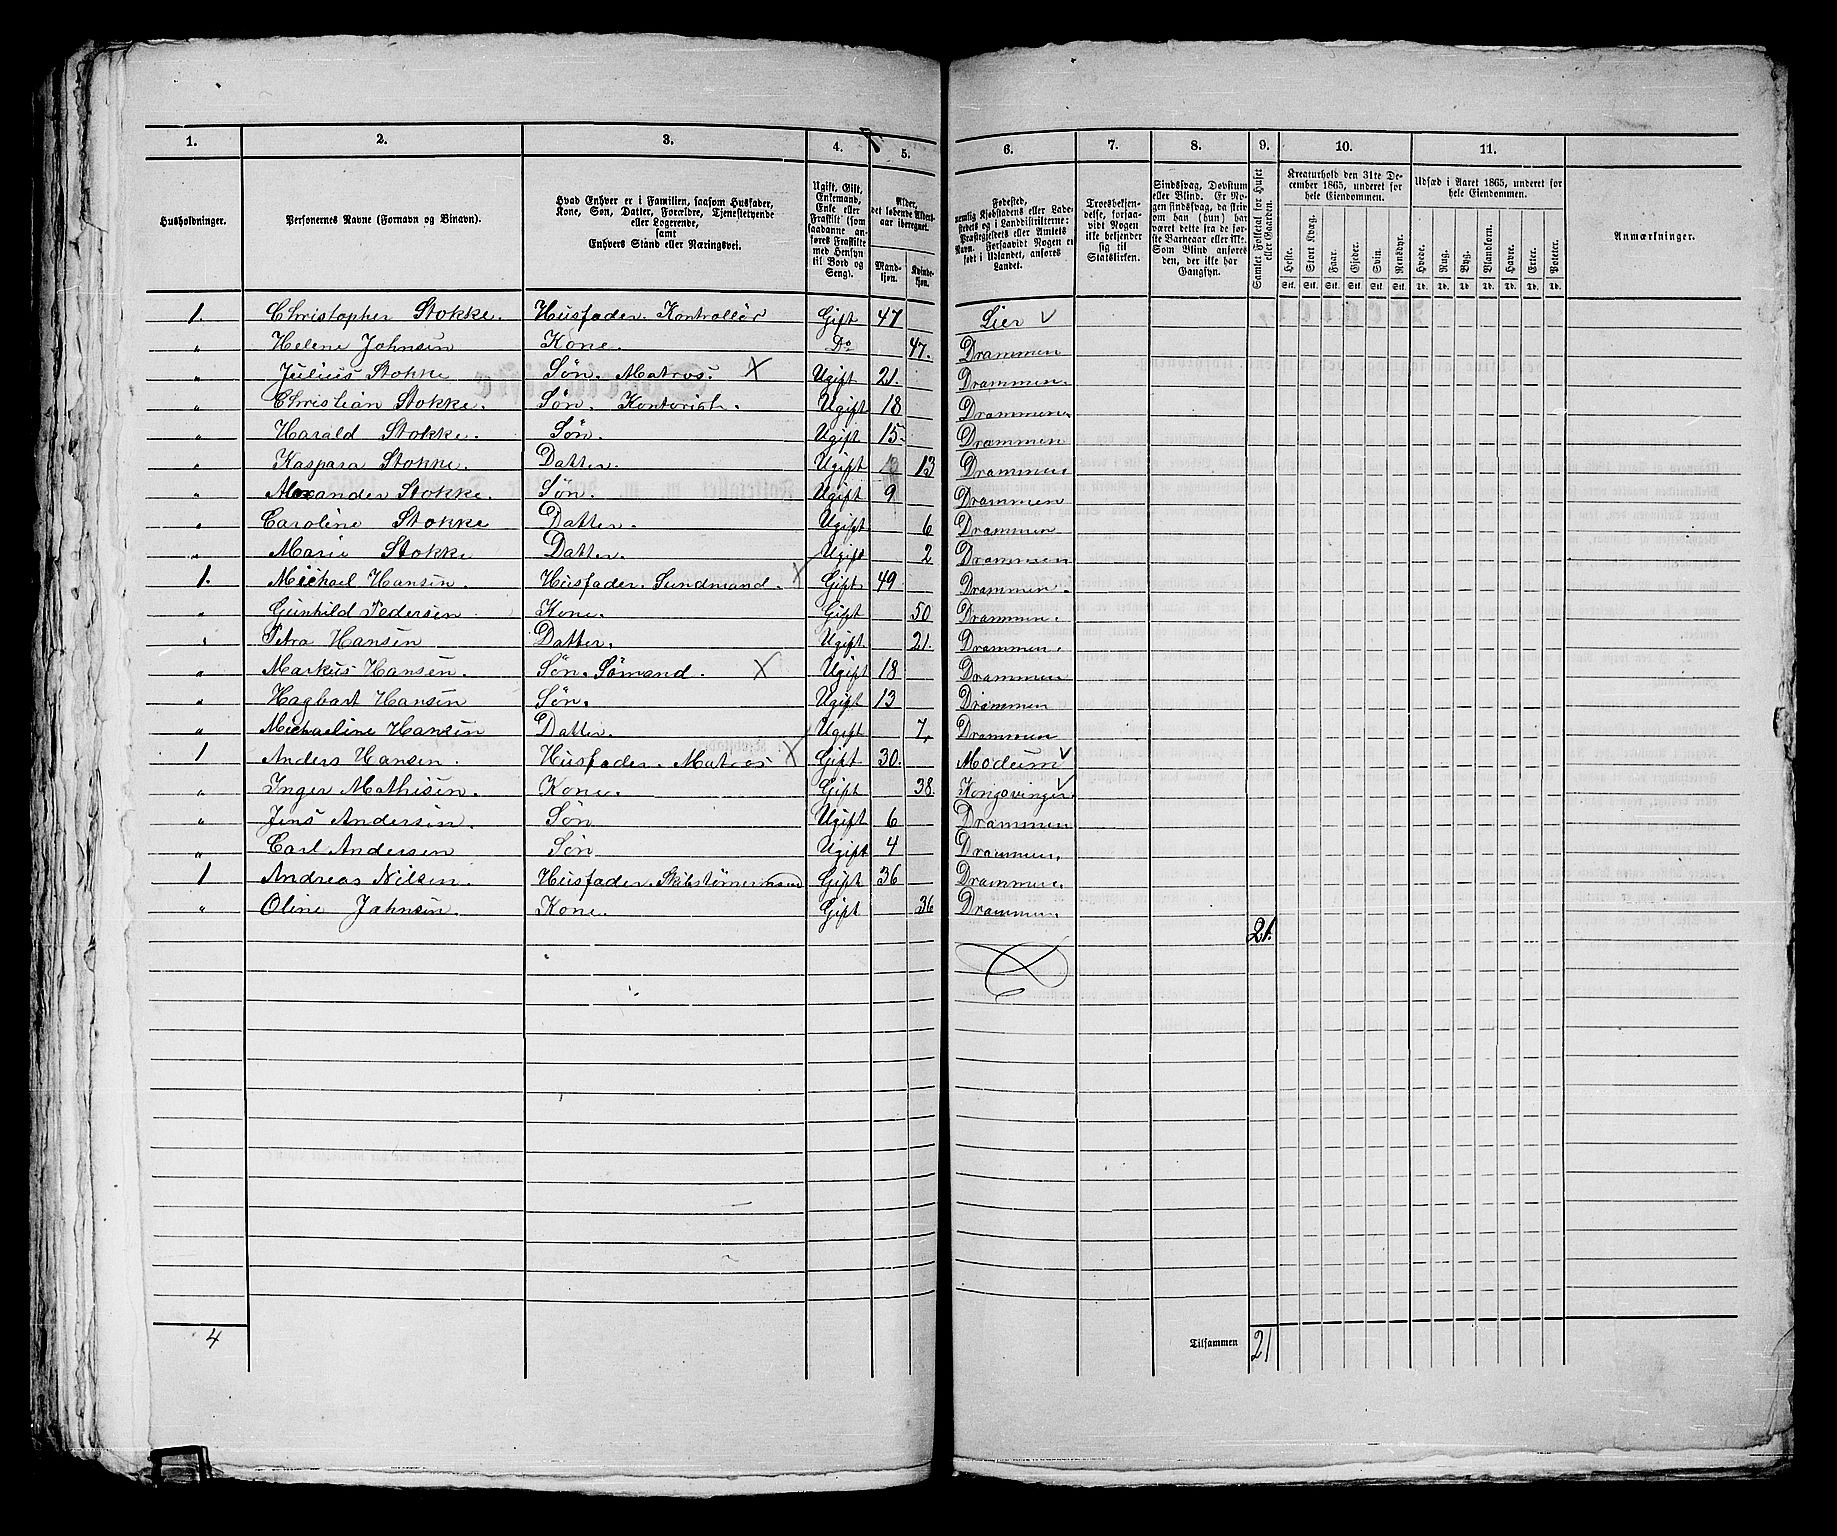 1. 2. 3. 4. 5. 6. 7. 8. 9. 10. 11.
Husholdninger.
Personernes Navne (Fornavn og Binavn).
Hvad Enhver er i Familien, saasom Husfader,
Kone, Søn, Datter, Forældre, Tjenestetyende
eller Logerende,
samt
Enhvers Stand eller Næringsvei.
Ugift, Gift,
Enkemand,
Enke eller
Fraskilt (som
saadanne an-
føres Fraskilte
med Hensyn
til Bord og
Seng).
Alder,
det løbende Alders-
aar iberegnet.
Mand-
kjøn.
Kvinde-
kjøn.
Fødested,
nemlig Kjøbstadens eller Lade-
stedets og i Landdistrikterne:
Præstegjeldets eller Amtets
Navn. Forsaavidt Nogen er
født i Udlandet, anføres
Landet.
Troesbekjen-
delse, forsaa-
vidt Nogen
ikke bekjender
sig til
Statskirken.
Sindssvag, Døvstum
eller Blind. Er No-
gen sindssvag, da skriv
om han (hun) har
været dette fra de før-
ste Barneaar eller ikke.
Som Blind anføres
den, der ikke har
Gangsyn.
Samlet Folketal for Huset
eller Gaarden.
Kreaturhold den 31te De-
cember 1865, underet for
hele Eiendommen.
Heste. Stort Kvæg. Faar. Gjeder. Svin. Rensdyr.
Stk. Stk. Stk. Stk. Stk. Stk.
Udsæd i Aaret 1865, underet for
hele Eiendommen.
Hvede. Rug. Byg. Blandkorn. Havre. Erter. Poteter.
Td. Td. Td. Td. Td. Td. Td.
Anmærkninger.
1. Christopher Stokke. Husfader. Kontrollør Gift 47 Lier
" Helene Johnsen Kone. Do 47. Drammen
" Julius Stokke Søn. Matros. X Ugift 21. Drammen.
" Christian Stokke. Søn. Kontorist. Ugift 18 Drammen.
" Harald Stokke. Søn. Ugift 15 Drammen
" Kaspara Stokke. Datter. Ugift 13 Drammen
" Alexander Stokke. Søn. Ugift 9 Drammen
" Caroline Stokke Datter. Ugift 6 Drammen
" Marie Stokke Datter. Ugift 2 Drammen
1. Michael Hansen. Husfader. Sundmand. X Gift 49 Drammen.
" Gunhild Pedersen Kone. Gift 50 Drammen.
" Petra Hansen Datter. Ugift 21. Drammen.
" Markus Hansen. Søn. Sömand. X Ugift 18 Drammen
" Hagbart Hansen Søn. Ugift 13 Drammen
" Michaeline Hansen Datter. Ugift 7, Drammen
1 Anders Hansen. Husfader. Matros X Gift 30. Modum
" Inger Mathisen. Kone. Gift 38. Kongsvinger.
" Jens Andersen. Søn Ugift 6 Drammen
" Carl Andersen Søn Ugift 4 Drammen.
1 Andreas Nilsen. Husfader. Skibstömermand Gift 36 Drammen.
" Oline Johnsen. Kone. Gift 36 Drammen.
21.
4 Tilsammen 21